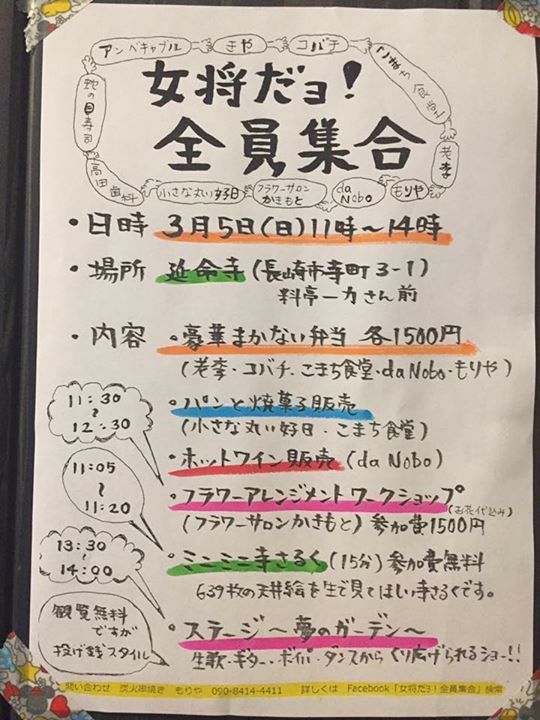 アンペキャブル
きや
コバチ
こまち食堂
老李
もりや
da Nobo
フラワーサロン
かきもと
小さな丸い好日
高田歯科
蛇の目寿司
女将だョ!
全員集合
・日時 3月5日(日)11時〜14時
・場所 延命寺(長崎市寺町3-1)
料亭一力さん前
・内容 ・豪華まかない弁当 各1500円
(老李・コバチ・こまち食堂・da Nobo・もりや)
11:30
〜
12:30
・パンと焼菓子販売
(小さな丸い好日・こまち食堂)
・ホットワイン販売(da Nobo)
11:05
〜
11:20
・フラワーアレンジメントワークショップ
(お花代込み)
(フラワーサロンかきもと)参加費1500円
13:30
〜
14:00
・ミニミニ寺さるく(15分)参加費無料
639枚の天井絵を生で見てほしい寺さるくです。
観覧無料
ですが
投げ銭スタイル
・ステージ〜夢のガーデン〜
生歌・ギター・ボイパ・ダンスからくり広げられるショー!!
問い合わせ 炭火串焼き もりや 090-8414-4411 詳しくは Facebook「女将だョ!全員集合」検索